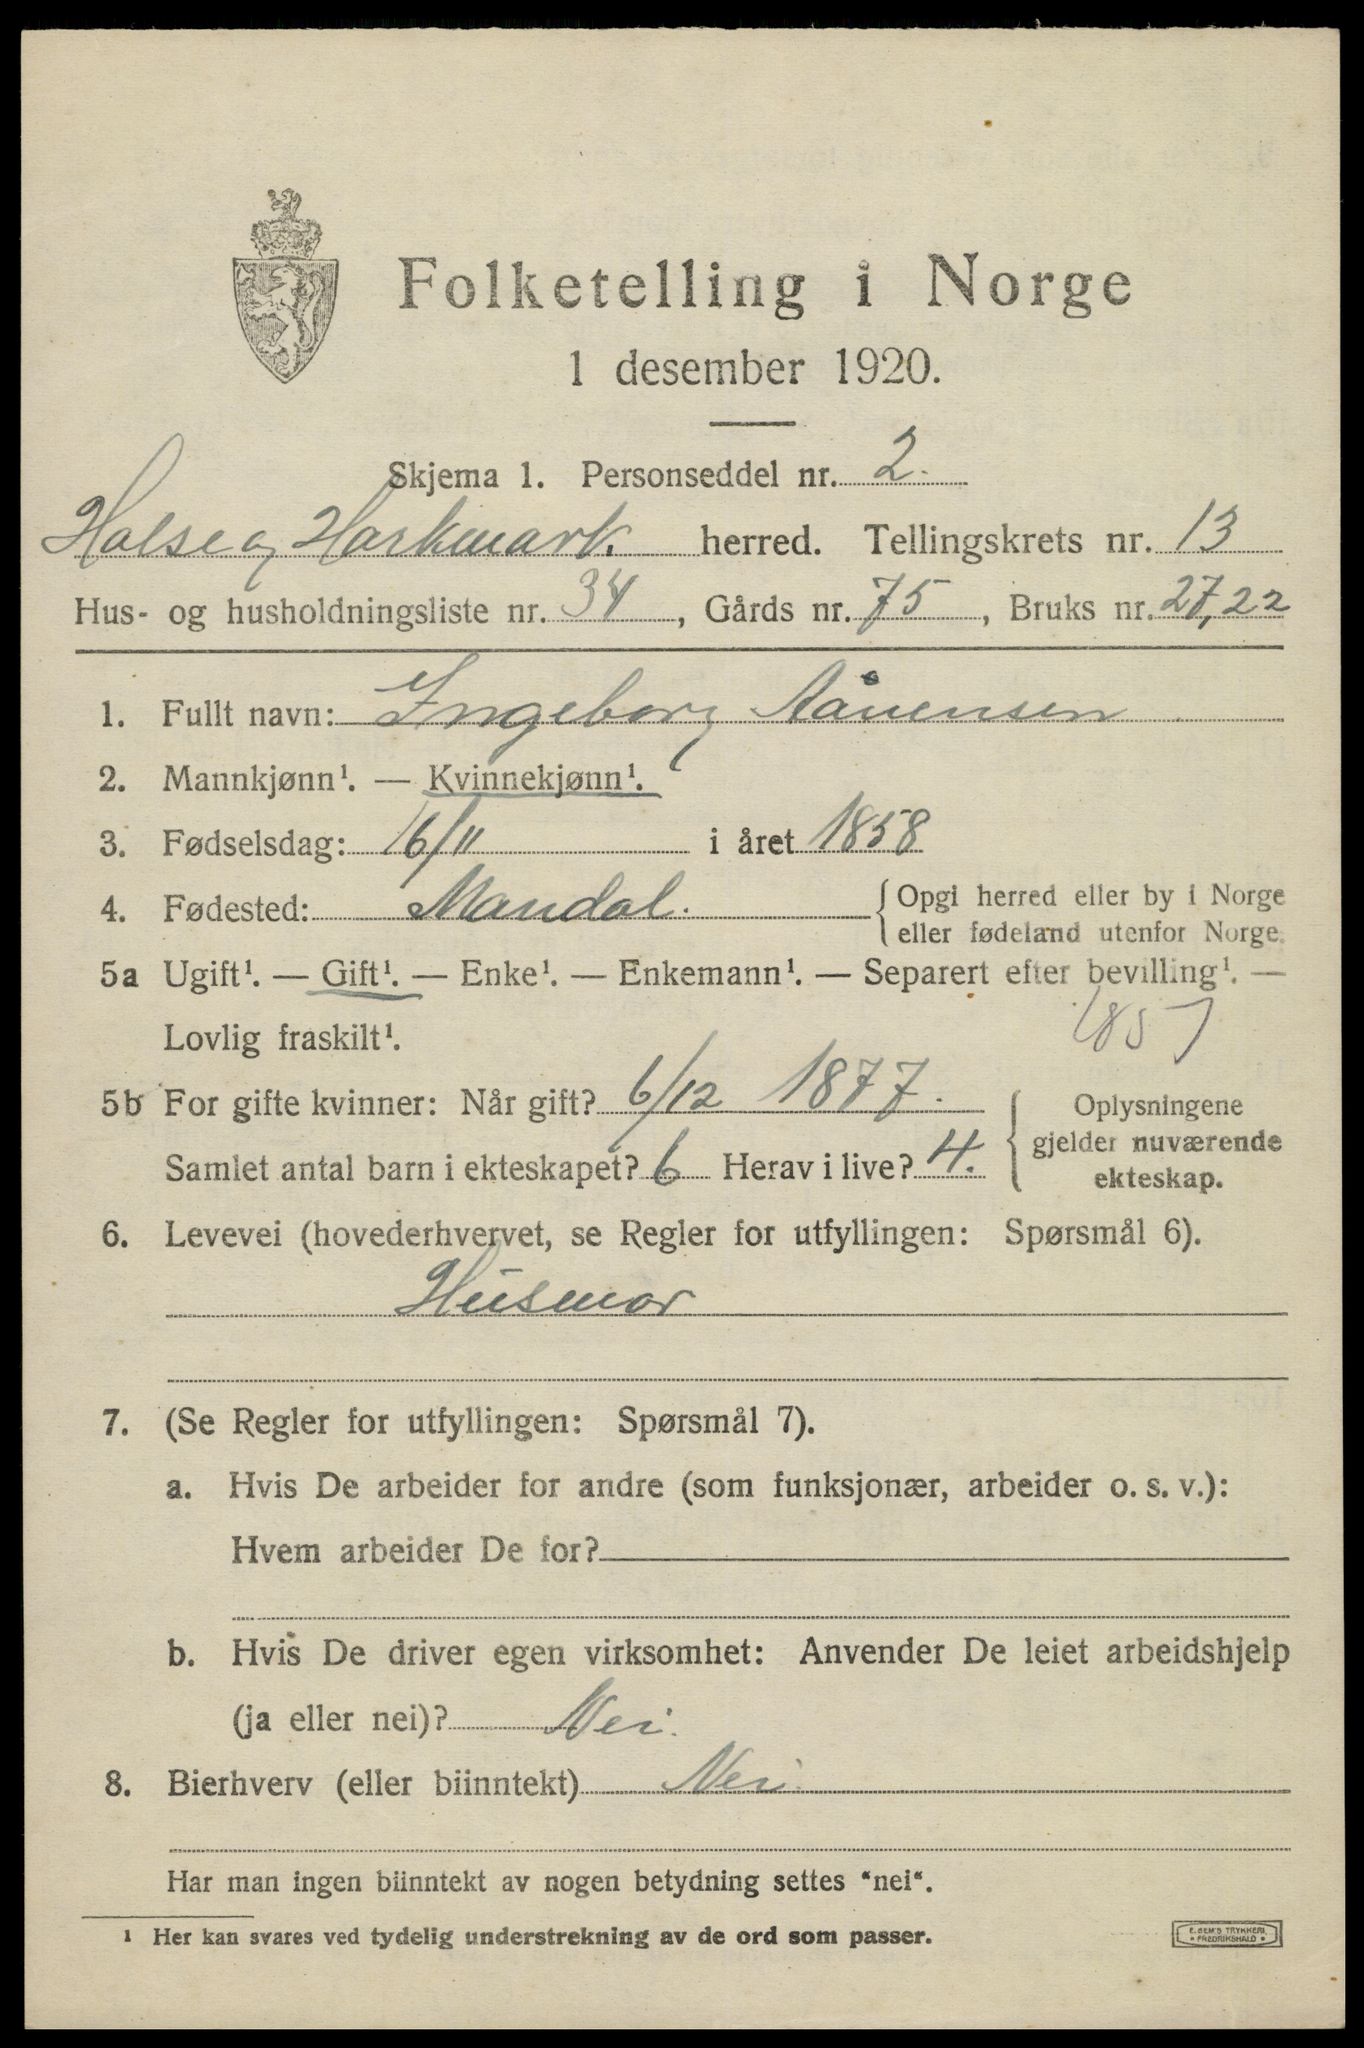 Folketelling i Norge
1 desember 1920.
Skjema 1. Personseddel nr. 2.
Halse og Harkmark. herred. Tellingskrets nr. 13
Hus- og husholdningsliste nr. 34, Gårds nr. 75, Bruks nr. 27, 22
1. Fullt navn: Ingeborg Aanensen
2. Mannkjønn¹. — Kvinnekjønn¹.
3. Fødselsdag: 16/11 i året 1858
4. Fødested: Mandal. { Opgi herred eller by i Norge
eller fødeland utenfor Norge.
5a Ugift¹. — Gift¹. — Enke¹. — Enkemann¹. — Separert efter bevilling¹. —
Lovlig fraskilt¹. 1857
5b For gifte kvinner: Når gift? 6/12 1877. { Oplysningene
gjelder nuværende
Samlet antal barn i ekteskapet? 6 Herav i live? 4.
ekteskap.
6. Levevei (hovederhvervet, se Regler for utfyllingen: Spørsmål 6).
Husmor
7. (Se Regler for utfyllingen: Spørsmål 7).
a. Hvis De arbeider for andre (som funksjonær, arbeider o. s. v.):
Hvem arbeider De for?
b. Hvis De driver egen virksomhet: Anvender De leiet arbeidshjelp
(ja eller nei)? Nei.
8. Bierhverv (eller biinntekt) Nei.
Har man ingen biinntekt av nogen betydning settes "nei".
¹ Her kan svares ved tydelig understrekning av de ord som passer.
E. SEM'S TRYKKERI
* FREDRIKSHALD *